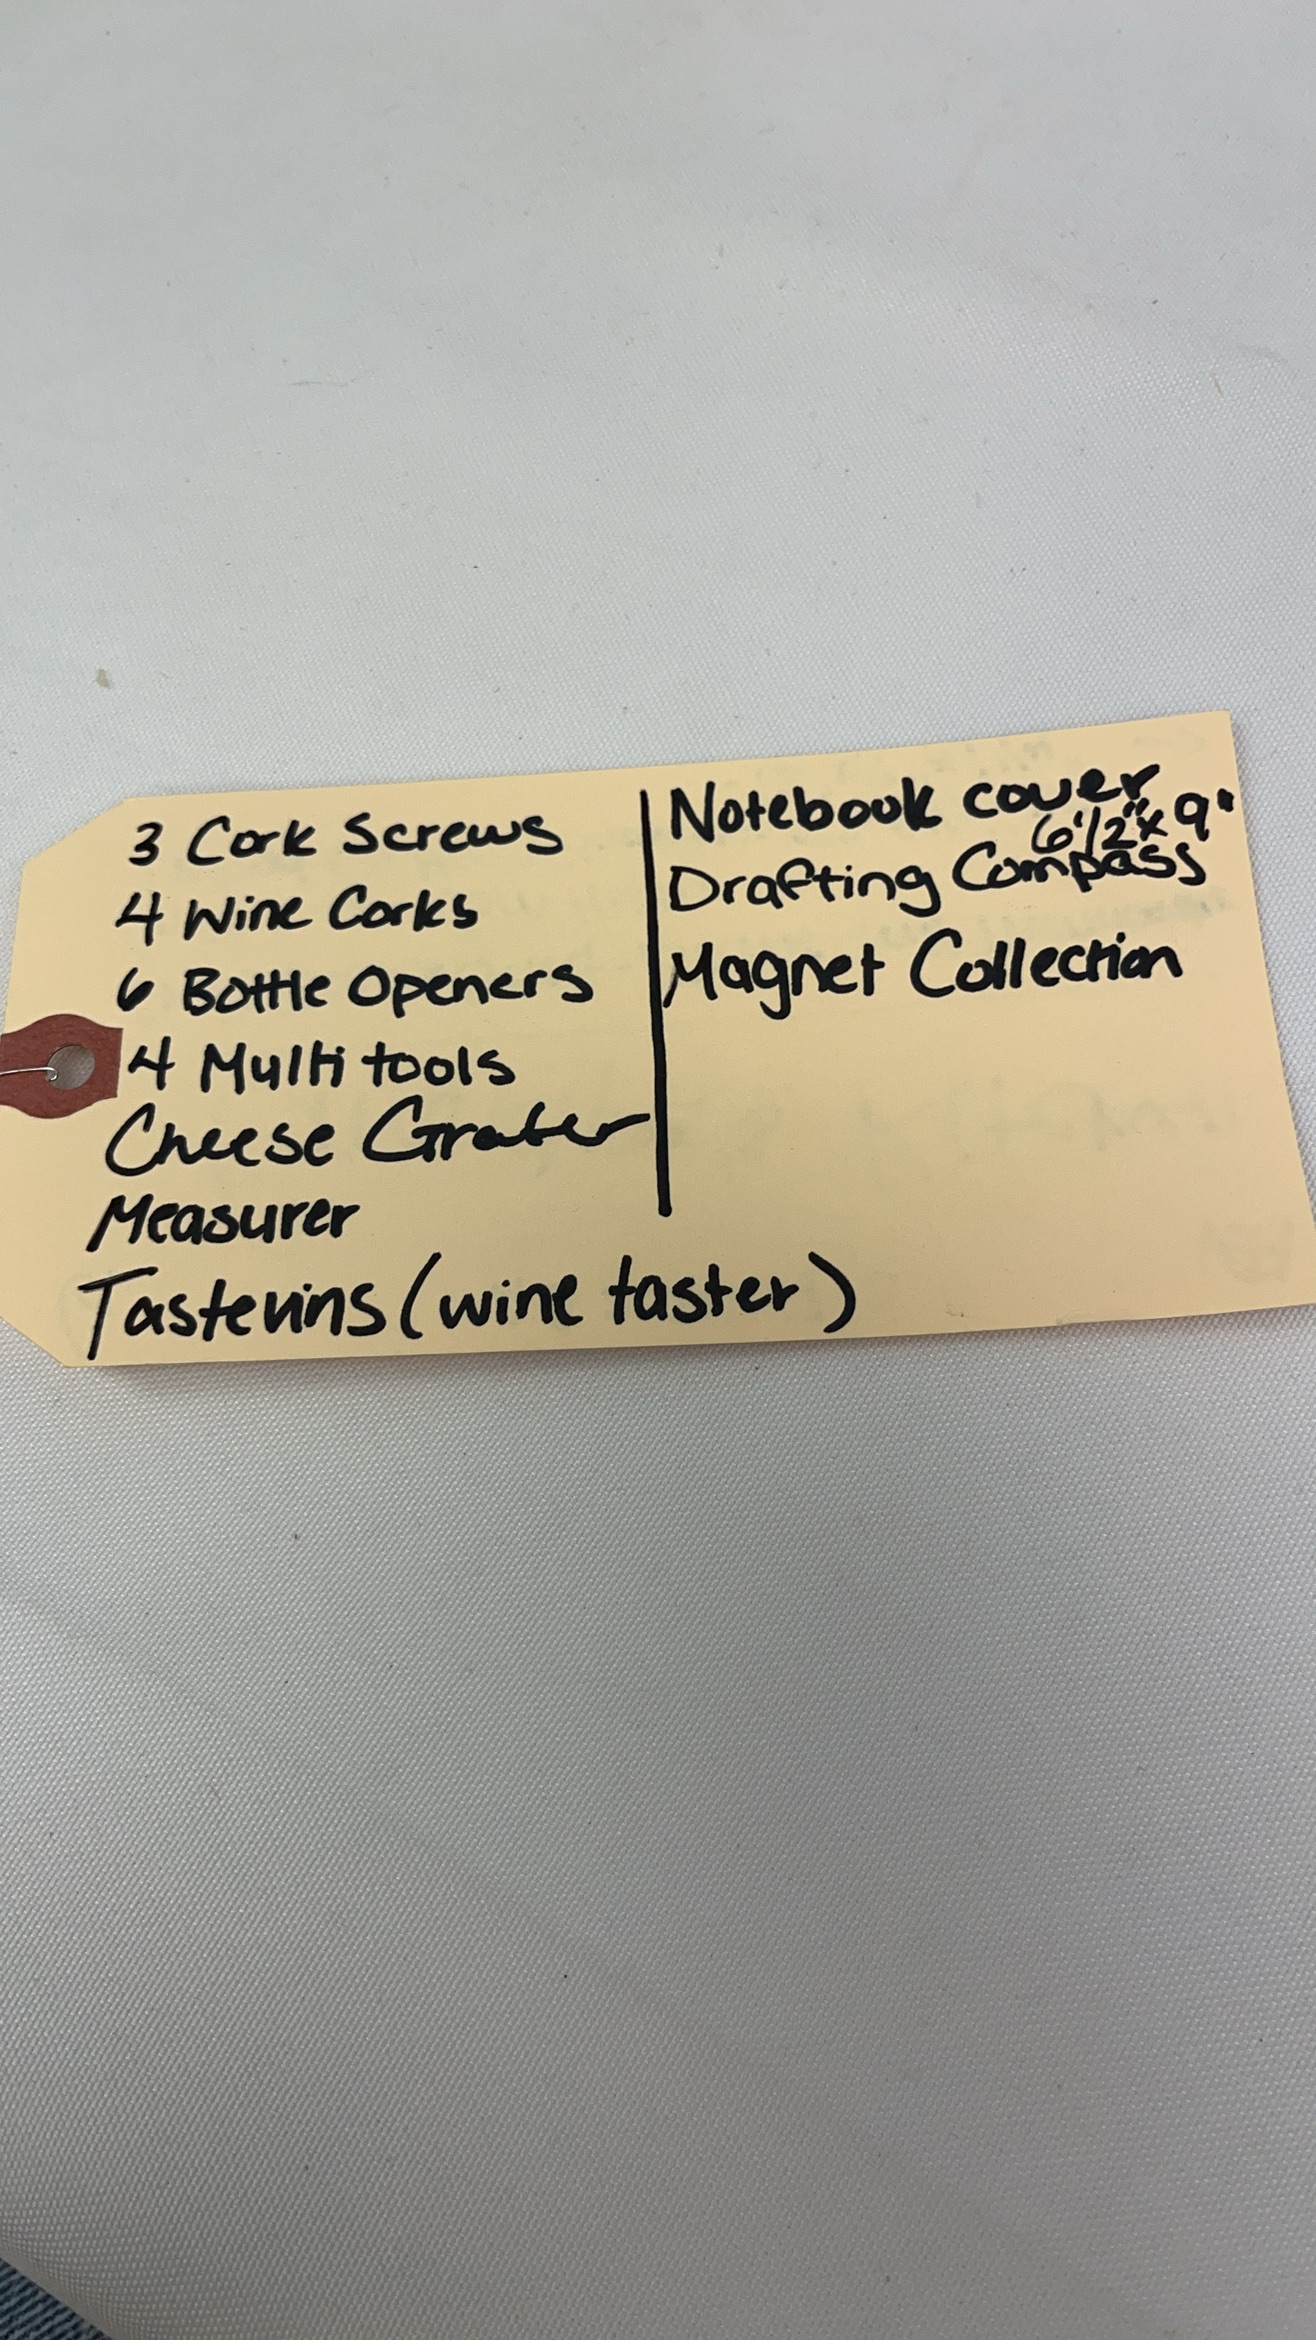 3 Cork Screws
4 Wine Corks
6 Bottle Openers
4 Multi tools
Cheese Grater
Measurer
Tastevins (wine taster)
Notebook cover
6 1/2" x 9"
Drafting Compass
Magnet Collection